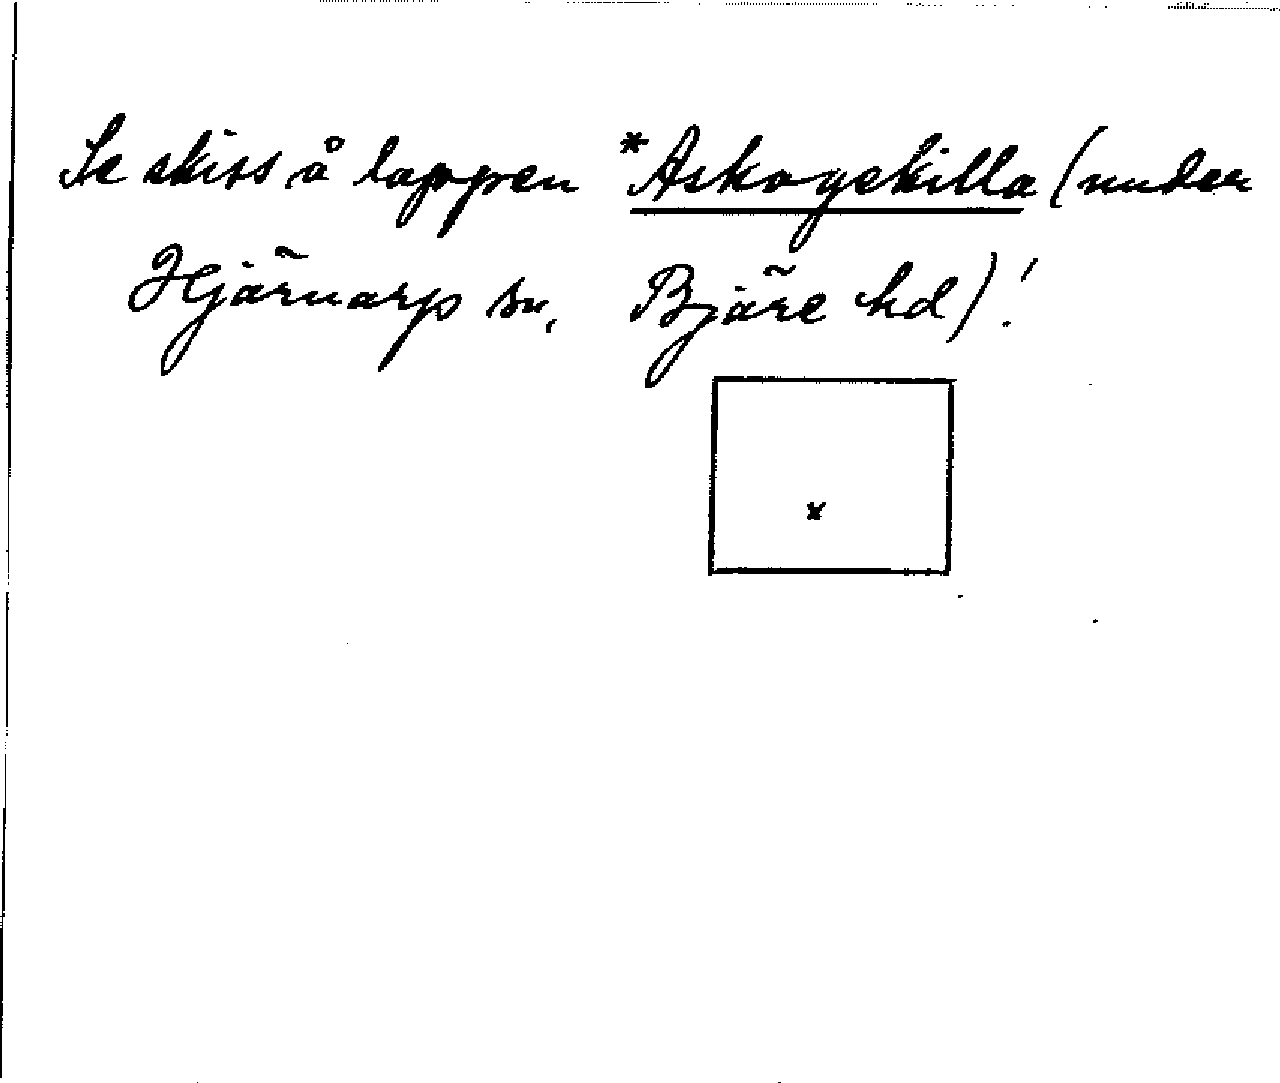 Se skiss å lappen *Askagekilla (under
Hjärnarp sn, Bjäre hd)!
x